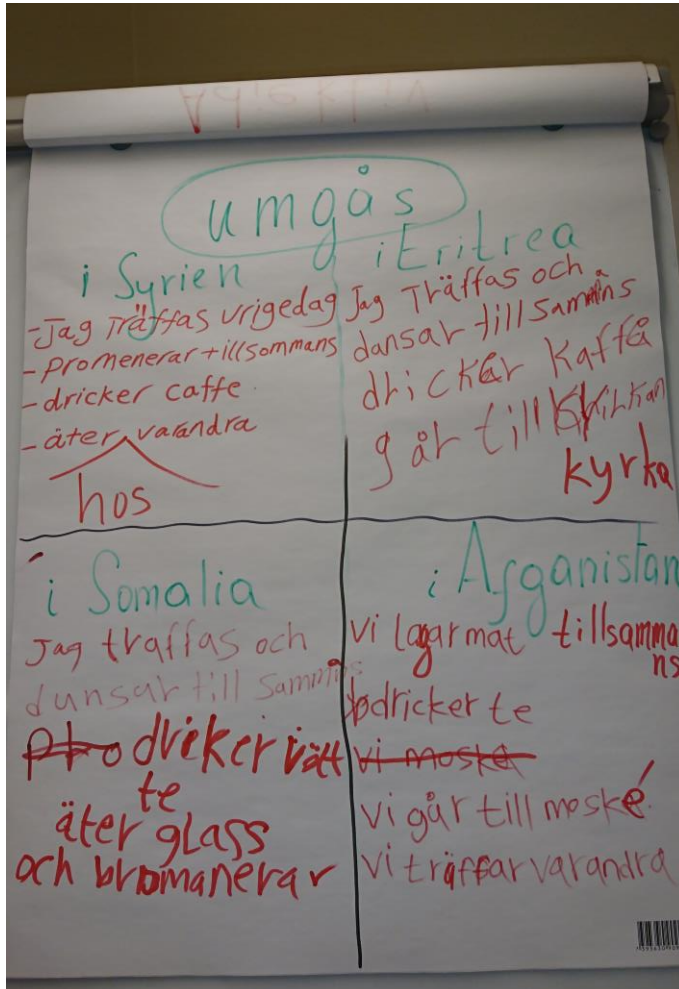 Adjektiv
umgås
i Syrien
-Jag Träffas vrigedag
-Promenerar tillsommans
-dricker caffe
-äter varandra
hos
i Eritrea
Jag Träffas och
dansar till sammans
dricker Kaffå
går till
kyrka
i Somalia
Jag traffas och
dunsar till sammins
driker
te
äter glass
och bromanerar
i Afganistan
vi lagar mat tillsamma
ns
dricker te
vi moské
vi går till moské
vi träffar varandra